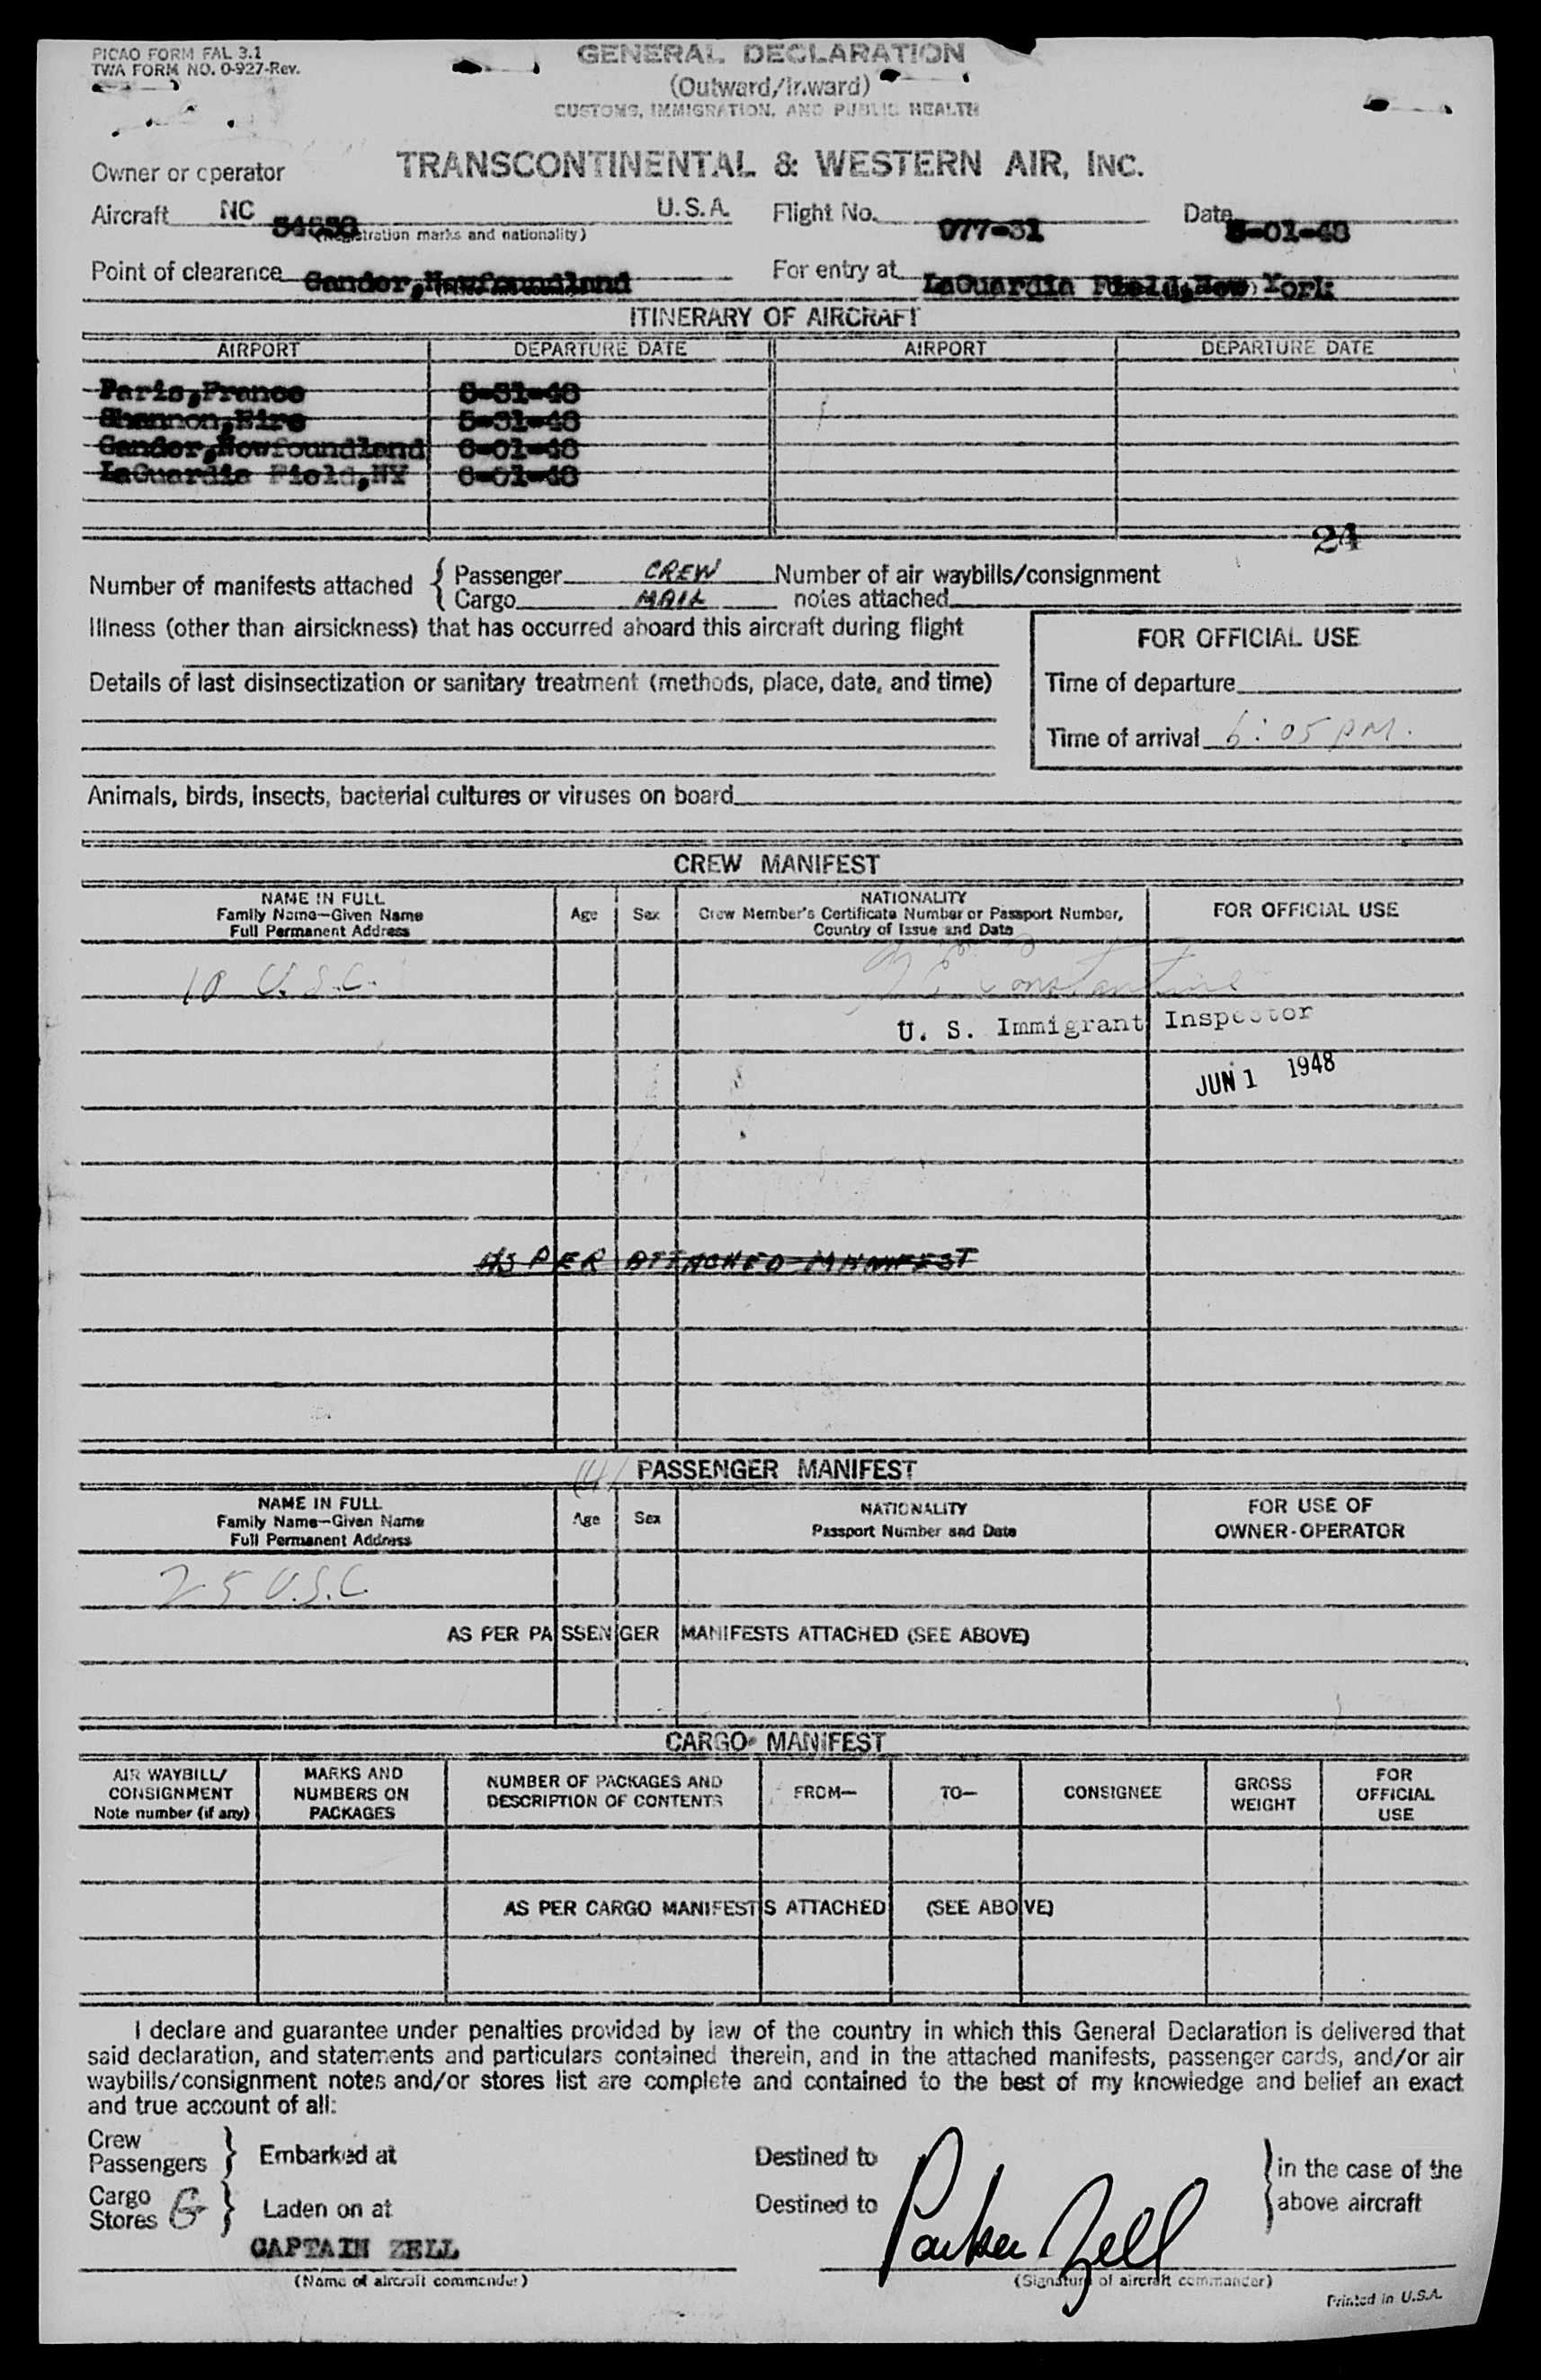 PICAO FORM FAL 3.1
TWA FORM NO. 0-927-Rev.
GENERAL DECLARATION
(Outward/Inward)
CUSTOMS, IMMIGRATION, AND PUBLIC HEALTH
Owner or operator TRANSCONTINENTAL & WESTERN AIR, INC.
Aircraft NC U.S.A. Flight No. 977-31 Date -01-48
(Registration marks and nationality)
Point of clearance Gander,Newfoundland For entry at LaGuardia Field,New York
ITINERARY OF AIRCRAFT
AIRPORT DEPARTURE DATE AIRPORT DEPARTURE DATE
Paris,France -31-48
Shannon,Eire 5-31-48
Gander,Newfoundland 6-01-48
LaGuardia Field,NY 6-01-48
24
Number of manifests attached { Passenger CREW Number of air waybills/consignment
Cargo MAIL notes attached
Illness (other than airsickness) that has occurred aboard this aircraft during flight
FOR OFFICIAL USE
Details of last disinsectization or sanitary treatment (methods, place, date, and time)
Time of departure
Time of arrival 6:05 PM.
Animals, birds, insects, bacterial cultures or viruses on board
CREW MANIFEST
NAME IN FULL
Family Name—Given Name
Full Permanent Address
Age Sex
NATIONALITY
Crew Member's Certificate Number or Passport Number,
Country of Issue and Date
FOR OFFICIAL USE
10 U.S.C. Constantine
U. S. Immigrant Inspector
JUN 1 1948
AS PER ATTACHED MANIFEST
PASSENGER MANIFEST
NAME IN FULL
Family Name—Given Name
Full Permanent Address
Age Sex
NATIONALITY
Passport Number and Date
FOR USE OF
OWNER-OPERATOR
25 U.S.C.
AS PER PASSENGER MANIFESTS ATTACHED (SEE ABOVE)
CARGO MANIFEST
AIR WAYBILL/
CONSIGNMENT
Note number (if any)
MARKS AND
NUMBERS ON
PACKAGES
NUMBER OF PACKAGES AND
DESCRIPTION OF CONTENTS
FROM—
TO—
CONSIGNEE
GROSS
WEIGHT
FOR
OFFICIAL
USE
AS PER CARGO MANIFESTS ATTACHED (SEE ABOVE)
I declare and guarantee under penalties provided by law of the country in which this General Declaration is delivered that
said declaration, and statements and particulars contained therein, and in the attached manifests, passenger cards, and/or air
waybills/consignment notes and/or stores list are complete and contained to the best of my knowledge and belief an exact
and true account of all:
Crew
Passengers } Embarked at Destined to } in the case of the
Cargo
Stores } Laden on at Destined to above aircraft
CAPTAIN ZELL Parker Zell
(Name of aircraft commander) (Signature of aircraft commander)
Printed in U.S.A.